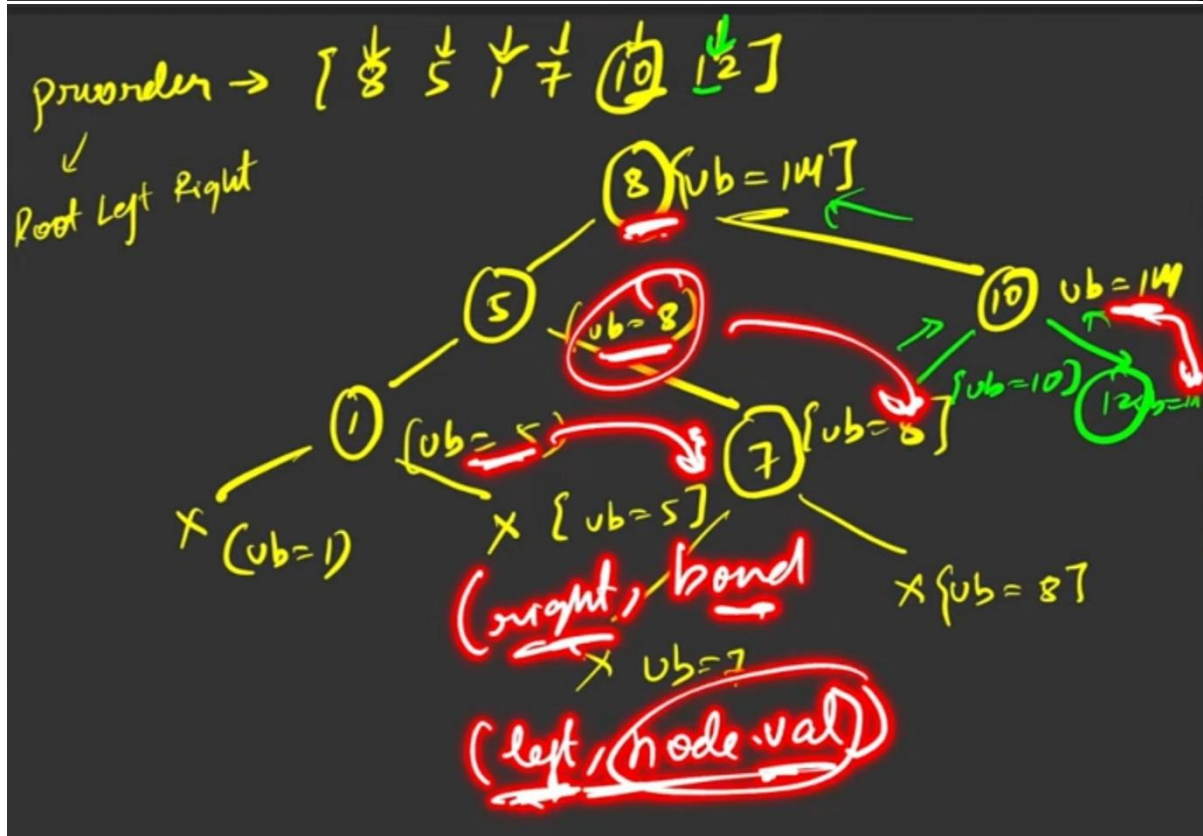 preorder → [ 8 5 1 7 10 12 ]
Root Left Right
8 [ub = IM]
5 (ub = 8)
10 ub = IM
1 (ub = 5)
7 [ub = 8]
[ub=10]
12
X (ub=1)
X [ub=5]
X [ub= 8]
(right, bond
X ub=7
(left, node.val)